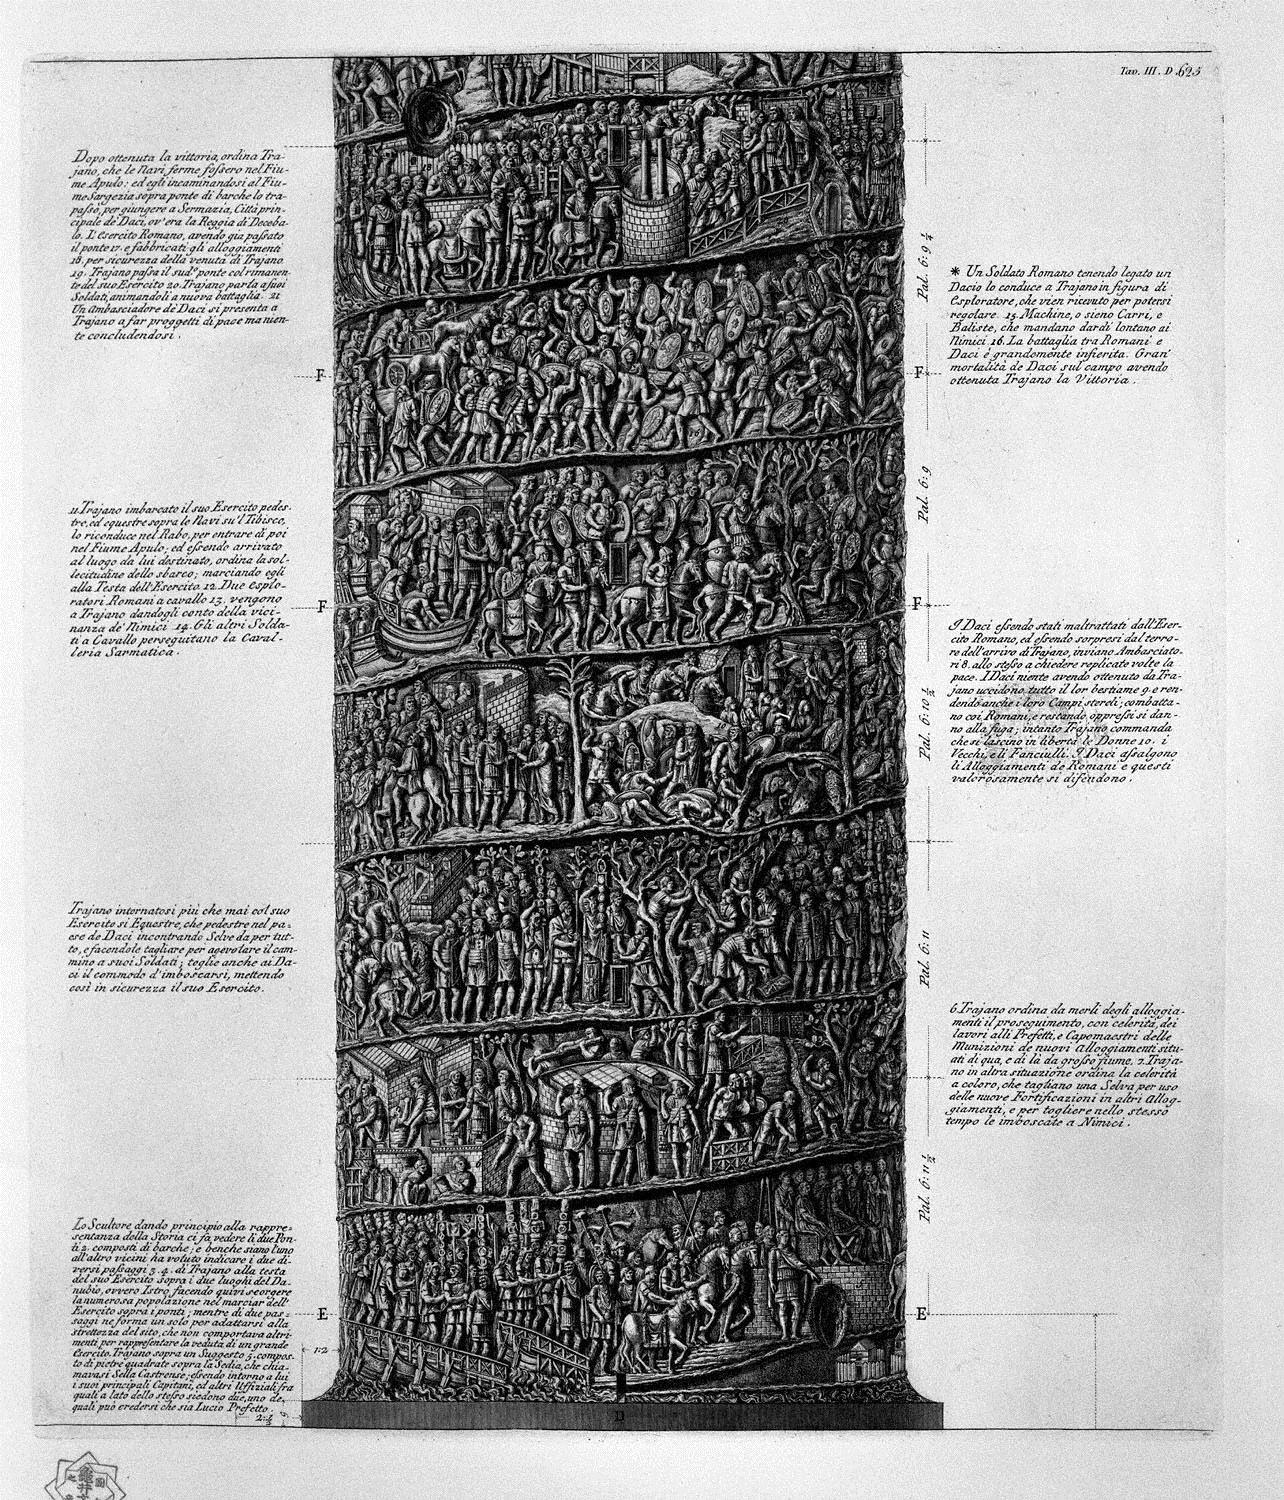 Tav. III. D 625
Dopo ottenuta la vittoria, ordina Tra-
jano, che le Navi ferme fossero nel Fiu-
me Apulo: ed egli incaminandosi al Fiu-
me Sargezia sopra ponte di barche lo tra-
passò, per giungere a Sermazia, Città prin-
cipale de' Daci, ov'era la Reggia di Deceba-
lo. L'Esercito Romano, avendo già passato
il ponte 17. e fabbricati gli alloggiamenti
18. per sicurezza della venuta di Trajano
19. Trajano passa il sud.º ponte col rimanen-
te del suo Esercito 20. Trajano parla a suoi
Soldati, animandoli a nuova battaglia. 21
Un Ambasciadore de' Daci si presenta a
Trajano a far proggetti di pace ma nien-
te concludendosi.
F
11. Trajano imbarcato il suo Esercito pedes-
tre, ed equestre sopra le Navi su'l Tibisco,
lo riconduce nel Rabo, per entrare di poi
nel Fiume Apulo; ed essendo arrivato
al luogo da lui destinato, ordina la sol-
lecitudine dello sbarco; marciando egli
alla Testa dell'Esercito. 12. Due Esplo-
ratori Romani a cavallo 13. vengono
a Trajano dandogli conto della vici-
nanza de' Nimici 14. Gli altri Solda-
ti a Cavallo perseguitano la Caval-
leria Sarmatica.
F
Trajano internatosi più che mai col suo
Esercito sì Equestre, che pedestre nel pa-
ese de Daci incontrando Selve da per tut-
to, e facendole tagliare per agevolare il cam-
mino a suoi Soldati; toglie anche ai Da-
ci il commodo d'imboscarsi, mettendo
così in sicurezza il suo Esercito.
Lo Scultore dando principio alla rappre-
sentanza della Storia ci fa vedere li due Pon-
ti 2. composti di barche; e benche siano l'uno
all'altro vicini ha voluto indicare i due di-
versi passaggi 3. 4. di Trajano alla testa
del suo Esercito sopra i due luoghi del Da-
nubio, ovvero Istro, facendo quivi scorgere
la numerosa popolazione nel marciar dell'
Esercito sopra i ponti; mentre di due pas-
saggi ne forma un solo per adattarsi alla
strettezza del sito, che non comportava altri-
menti per rappresentare la veduta di un grande
Esercito. Trajano sopra un Suggesto 5. compos-
to di pietre quadrate sopra la Sedia, che chia-
mavasi Sella Castrense; essendo intorno a lui
i suoi principali Capitani, ed altri Uffiziali fra
quali a lato dello stesso siedono due, uno de,
quali può credersi che sia Lucio Prefetto.
E
12
2:½
D
16
Pal. 6:9 ¼
* Un Soldato Romano tenendo legato un
Dacio lo conduce a Trajano in figura di
Esploratore, che vien ricevuto per potersi
regolare. 15. Machine, o sieno Carri, e
Baliste, che mandano dardi lontano ai
Nimici 16. La battaglia tra Romani e
Daci è grandemente infierita. Gran
mortalità de Daci sul campo avendo
ottenuta Trajano la Vittoria.
F
Pal. 6:9
F
I Daci essendo stati maltrattati dall'Eser-
cito Romano, ed essendo sorpresi dal terro-
re dell'arrivo di Trajano, inviano Ambasciato-
ri 8. allo stesso a chiedere replicate volte la
pace. I Daci niente avendo ottenuto da Tra-
jano uccidono tutto il lor bestiame 9. e ren-
dendo anche i loro Campi sterili; combatta-
no coi Romani, e restando oppressi si dan-
no alla fuga; intanto Trajano commanda
che si lascino in libertà le Donne 10. i
Vecchi, e li Fanciulli. I Daci assalgono
li Alloggiamenti de Romani e questi
valorosamente si difendono.
Pal. 6:10 ½
Pal. 6:11
6 Trajano ordina da merli degli alloggia-
menti il proseguimento, con celerità, dei
lavori alli Prefetti, e Capomaestri delle
Munizioni de nuovi Alloggiamenti situ-
ati di qua, e di là da grosso fiume. 7. Traja-
no in altra situazione ordina la celerità
a coloro, che tagliano una Selva per uso
delle nuove Fortificazioni in altri Allog-
giamenti, e per togliere nello stesso
tempo le imboscate a Nimici.
Pal. 6:11 ½
E